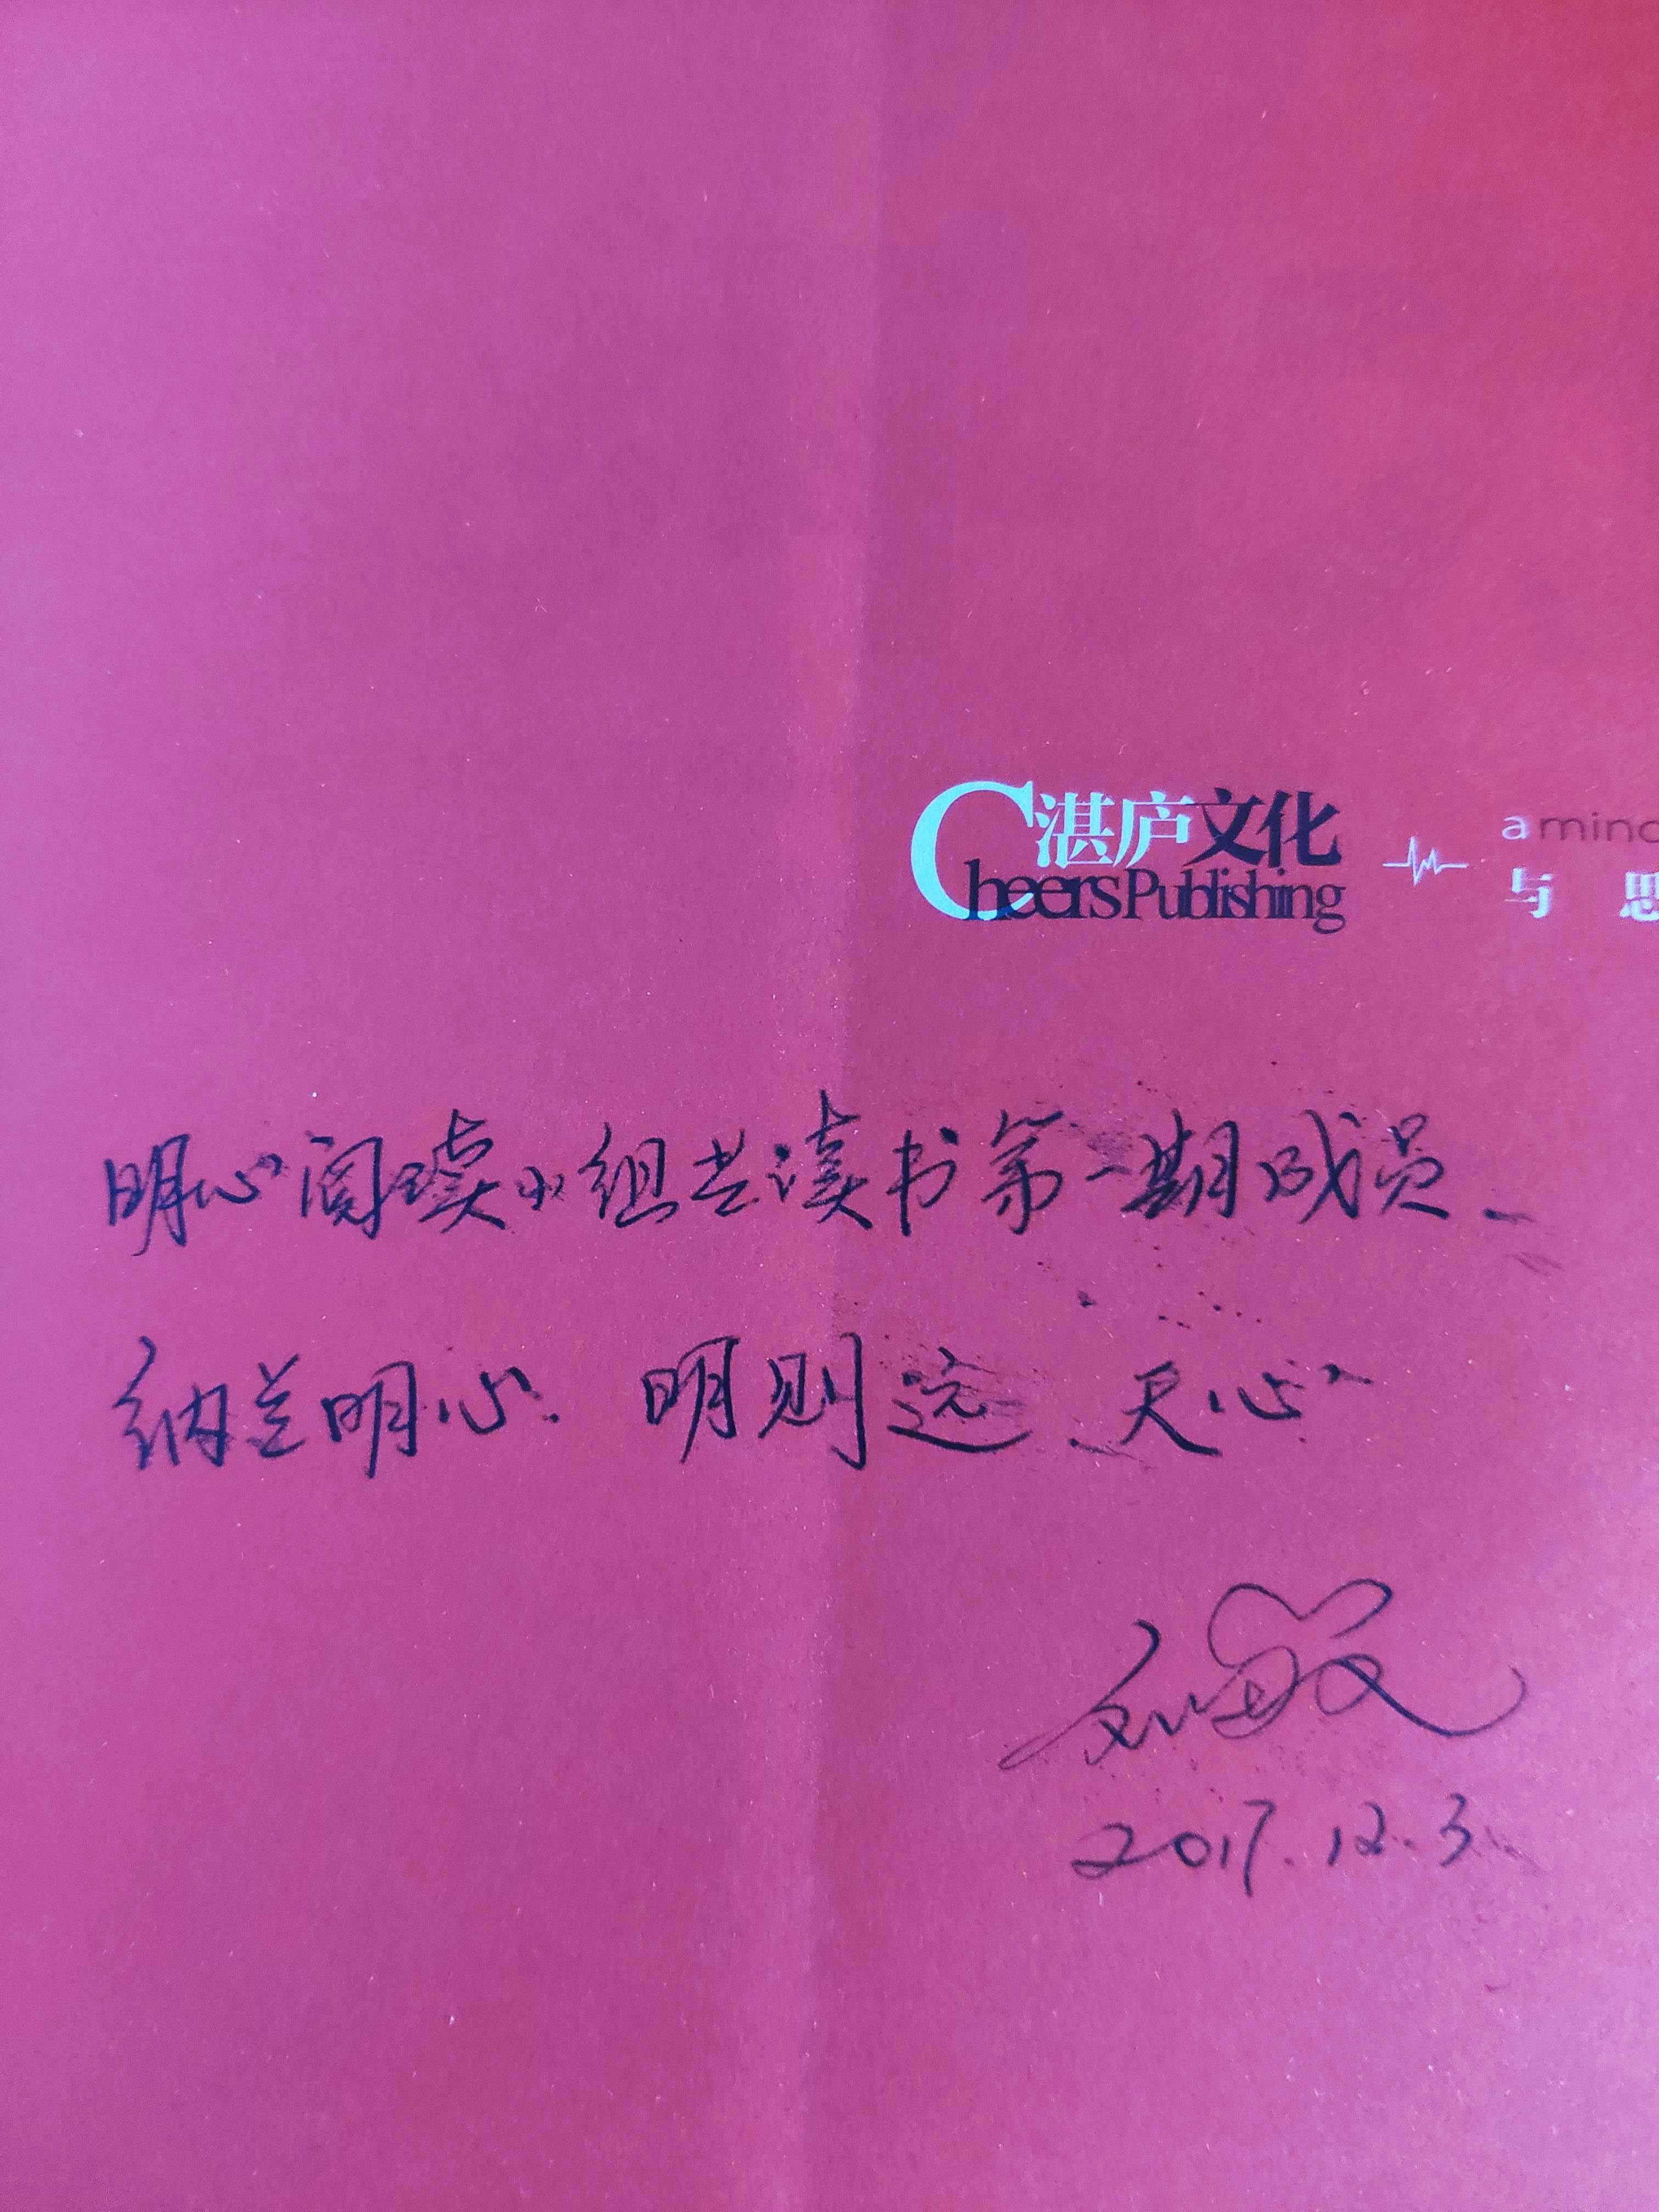 湛庐文化 a mind
Cheers Publishing 与 思
明心阅读小组共读书第一期成员
纳兰明心 明则远 天心
刘敏
2017.12.3